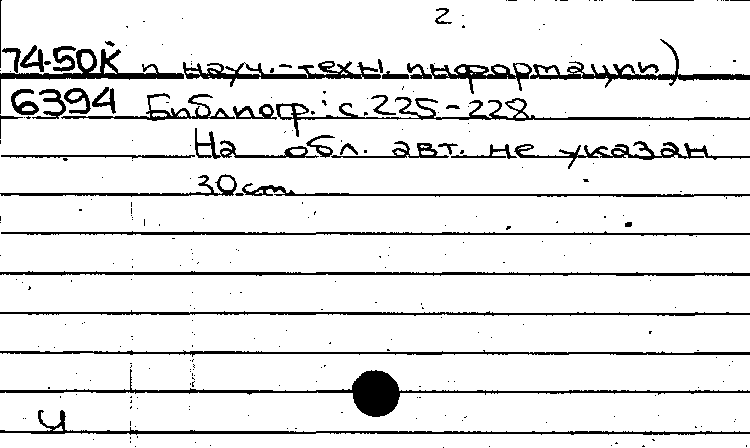 2.
74-50К и науч.-техн. информации)
6394 Библиогр.: с. 225-228.
На обл. авт. не указан.
30cm.
ч